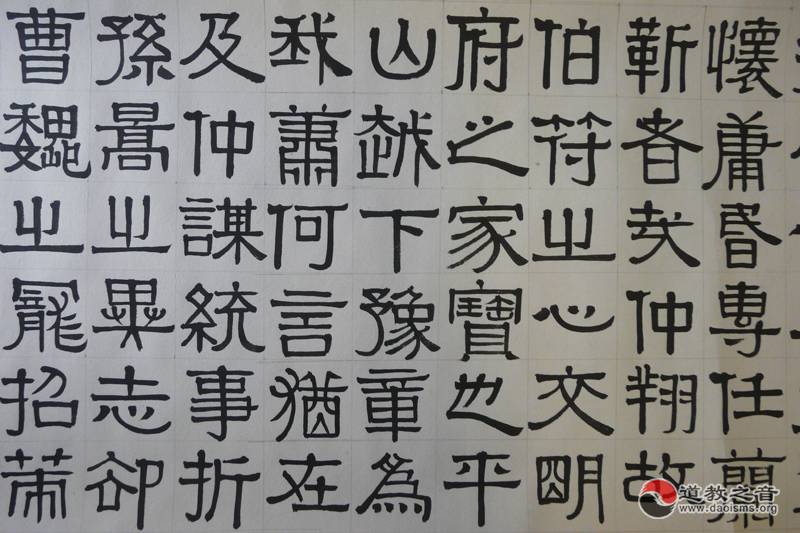 懷庸昏專任翦
靳者矣仲翔故
伯符之心交明
府之家寶也平
山越下豫章為
我蕭何言猶在
及仲謀統事折
孫暠之異志卻
曹魏之寵招
道教之音
www.daoisms.org